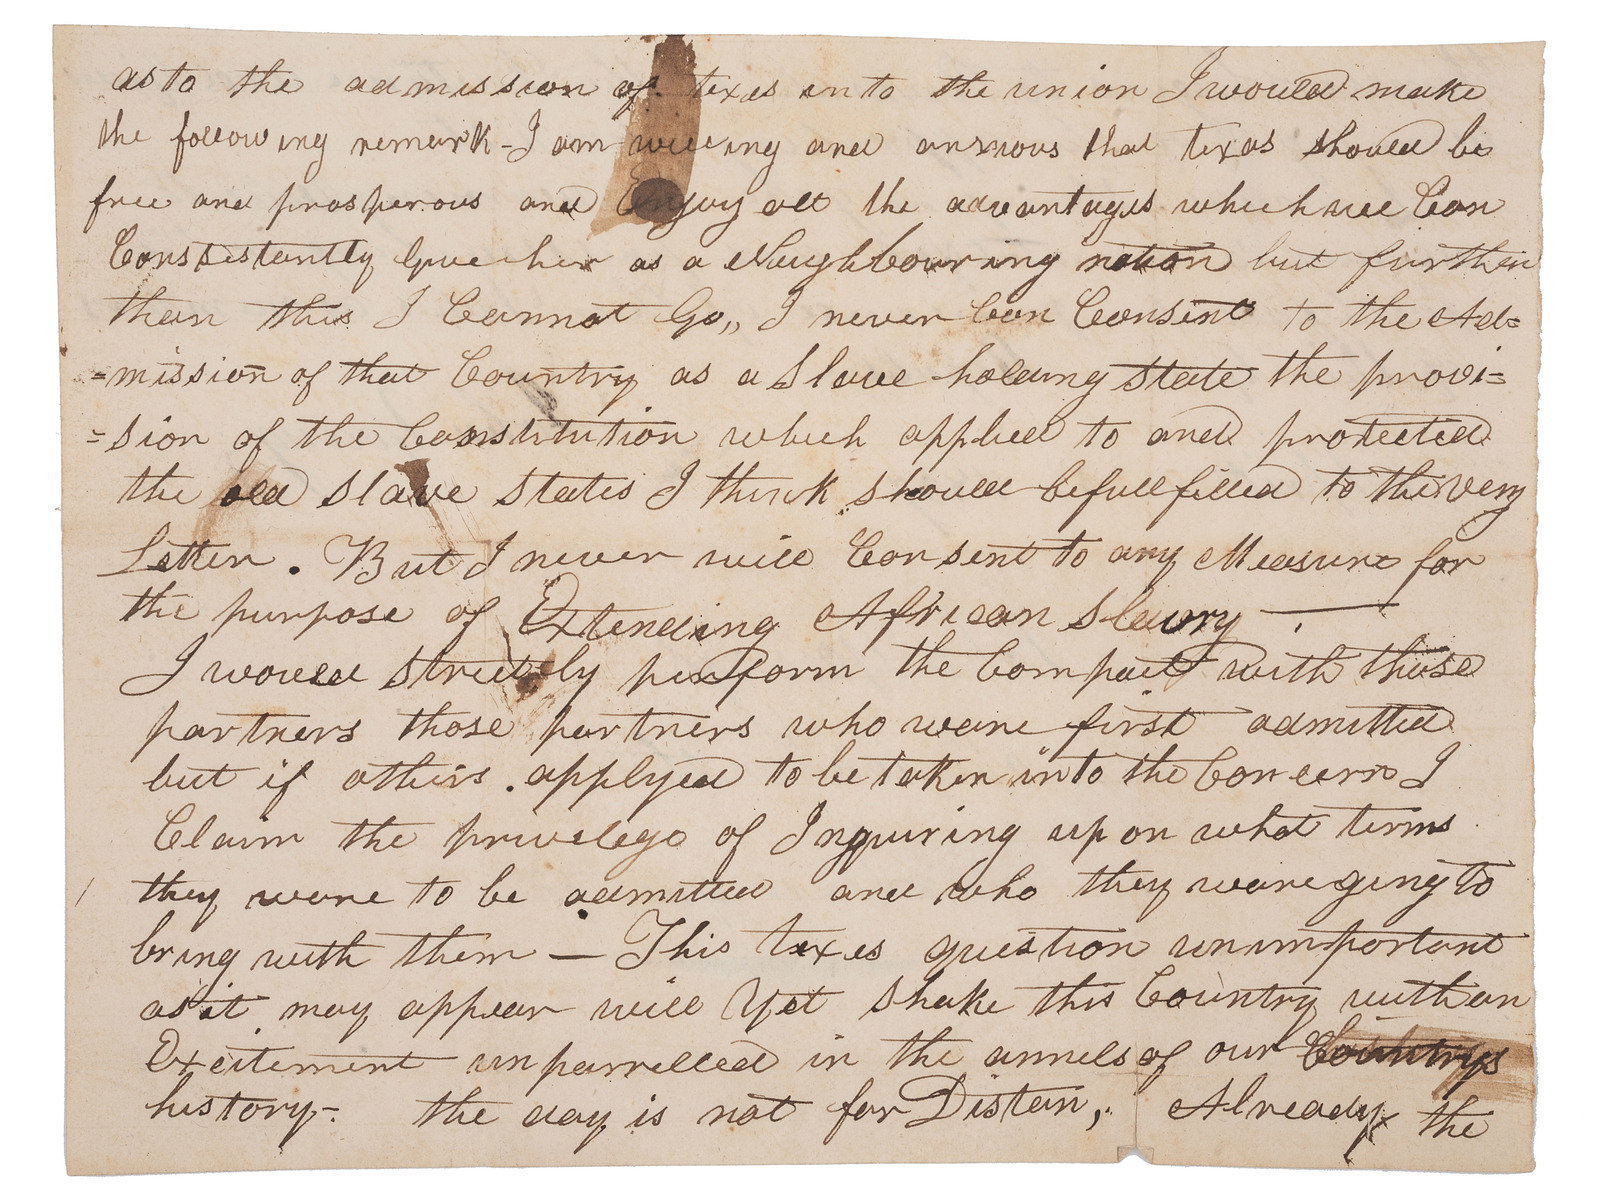 as to the admission of texas in to the union I would make
the following remark - I am willing and anxious that texas should be
free and prosperous and Enjoy all the advantages which we Can
Consistantly Give her as a Neighbouring nation but further
than this I Cannot Go,, I never Can Consent to the Ad=
=mission of that Country as a Slave holding State the provi=
=sion of the Constitution which applied to and protected
the old Slave States I think should be fullfilled to the very
Letter. But I never will Consent to any Measure for
the purpose of Extending African Slavery —
I would strictly perform the Compact with those
partners those partners who ware first admitted
but if others. applyed to be taken into the Concern I
Claim the privelege of Inquiring up on what terms
they ware to be admitted and who they ware going to
bring with them — This texes question unimportant
as it may appear will Yet shake this Country with an
Excitement unparrelled in the annels of our Countrys
history - the day is not far Distan,. Already the